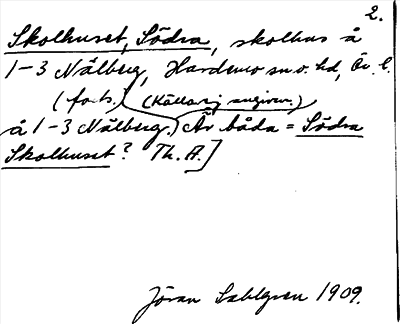 2.
Skolhuset, Södra, skolhus å
1-3 Nälberg, Hardemo sn o. hd, Ör. l.
(forts.) (Källa ej angiven.)
å 1-3 Nälberg. Är båda = Södra
Skolhuset? Th. A.]
Jöran Sahlgren 1909.